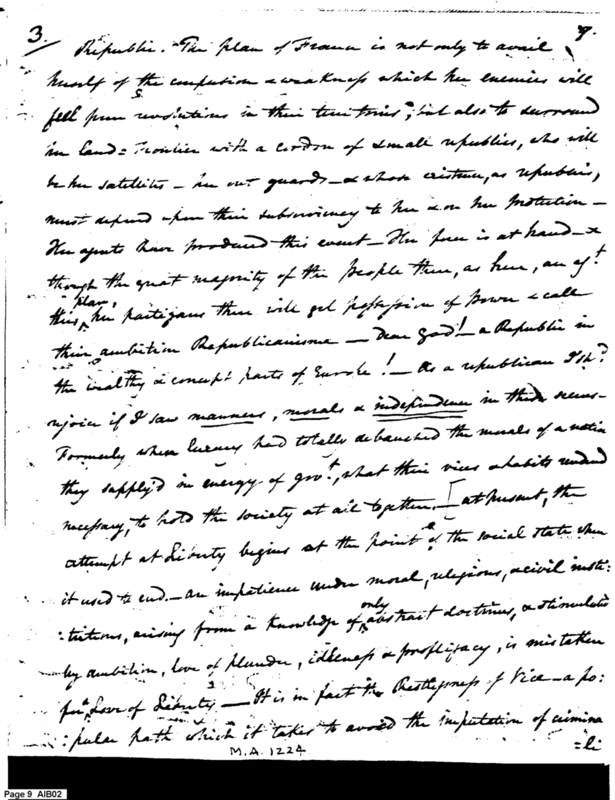 3. 9.
Republic. The plan of France is not only to avail
herself of the confusion & weakness which her enemies will
feel from revolutions in their territories, but also to surround
her Land=Frontier with a cordon of small republics, who will
be her satellites – her out guards – & whose existence, as republics,
must depend upon their subserviency to her & on her protection –
Her agents have produced this event – Her force is at hand – &
though the great majority of the People there, as here, are agt.
this plan, her partizans there will get possession of power & call
their ambition Republicanism – Dear God! – a Republic in
the wealthy & corrupt parts of Europe! – As a republican I shd.
rejoice if I saw manners, morals & independence in these scenes –
Formerly when luxury had totally debauched the morals of a nation
they supply'd in energy of govt., what their vices & habits rendered
necessary, to hold the society at all together. – [at present, the
attempt at Liberty begins at the point of the social state where
it used to end. – an impatience under moral, religious, & civil insti:
:tutions, arising from a knowledge of only abstract doctrines, & stimulated
by ambition, love of plunder, idleness & profligacy, is mistaken
for a Love of Liberty – It is in fact the Restlessness of Vice – a po:
:pular path which it takes to avoid the imputation of crimina
=li
M.A. 1224
Page 9 AIB02